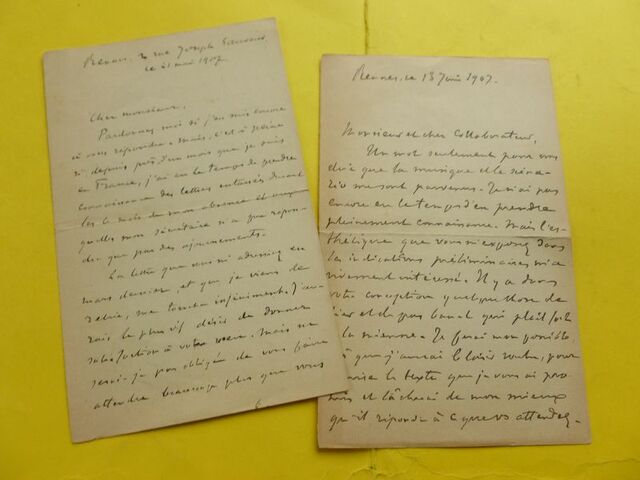 Rennes, 2 rue Joseph Sauveur,
ce 21 mai 1907.
Cher monsieur,
Pardonnez moi si j'en suis encore
à vous répondre. Mais, c'est à peine
si, depuis près d'un mois que je suis
en France, j'ai eu le temps de prendre
connaissance des lettres entassées durant
les mois de mon absence et
quelles mon secrétaire n'a que répon-
du que par des ajournements.
La lettre que vous m'adressiez en
mars dernier, et que je viens de
relire, me touche infiniment. J'au-
rais le plus vif désir de donner
satisfaction à votre vœu. Mais ne
serai-je pas obligé de vous faire
attendre beaucoup plus que vous
Rennes, ce 18 Juin 1907.
Monsieur et cher Collaborateur,
Un mot seulement pour vous
dire que la musique et le scéna-
rio me sont parvenus. Je n'ai pas
encore eu le temps d'en prendre
pleinement connaissance. Mais l'es-
thétique que vous m'exposez dans
les indications préliminaires m'a
vivement intéressé. Il y a dans
votre conception quelque chose de
fier et de pas banal qui plaît fort
à la mienne. Je ferai mon possible,
que j'aurai le loisir voulu, pour
le texte que je vous ai pro-
mis et tâcherai de mon mieux
qu'il réponde à ce que vs attendez.